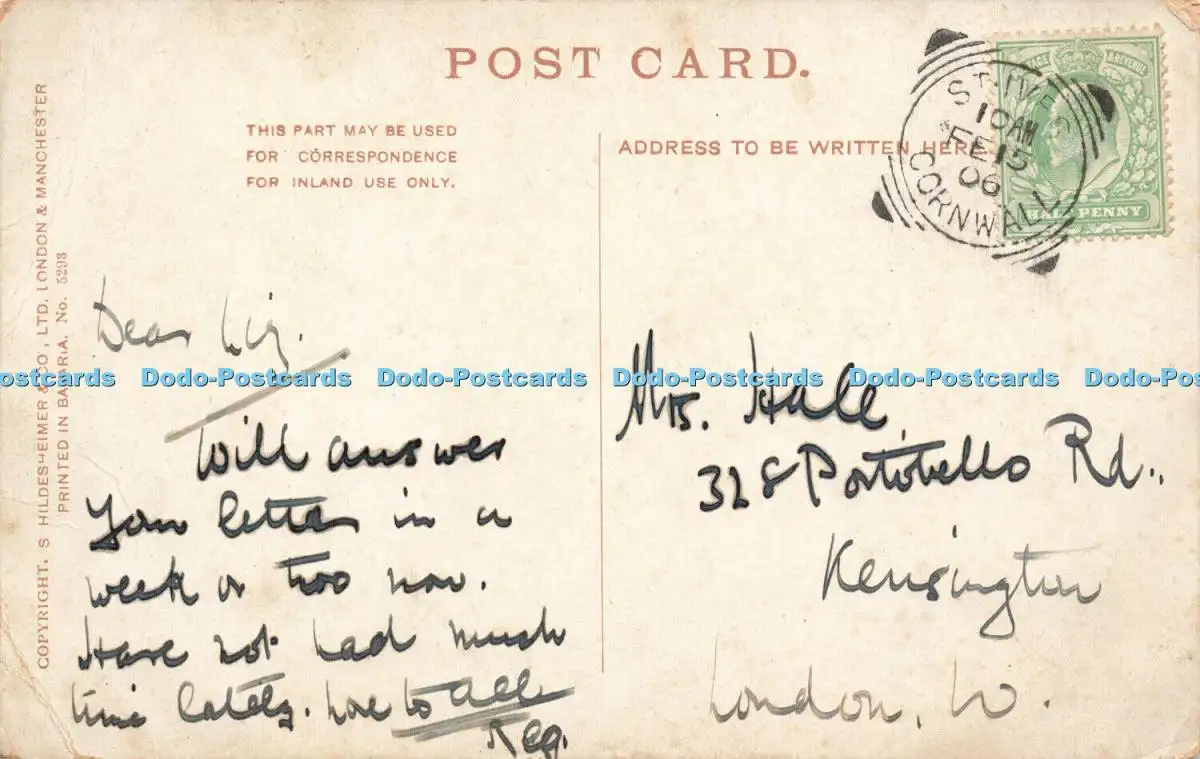 POST CARD.
THIS PART MAY BE USED
FOR CORRESPONDENCE
FOR INLAND USE ONLY.
ADDRESS TO BE WRITTEN HERE.
ST. IVES
10 AM
FE 15
06
CORNWALL
HALF PENNY
COPYRIGHT. S HILDESHEIMER & CO, LTD. LONDON & MANCHESTER
PRINTED IN BAVARIA. No. 5293
Dear Liz.
Will answer
your letter in a
week or two now.
Have not had much
time lately. Love to all
Reg.
Mrs. Hale
328 Portobello Rd.,
Kensington
London, W.
ostcards Dodo-Postcards Dodo-Postcards Dodo-Postcards Dodo-Postcards Dodo-Post